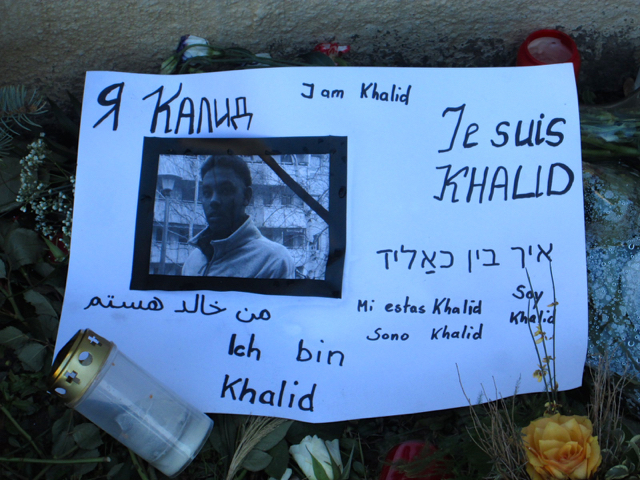 Я Калид
I am Khalid
Je suis
KHALID
איך בין כאַליד
من خالد هستم
Mi estas Khalid
Soy
Khalid
Sono Khalid
Ich bin
Khalid